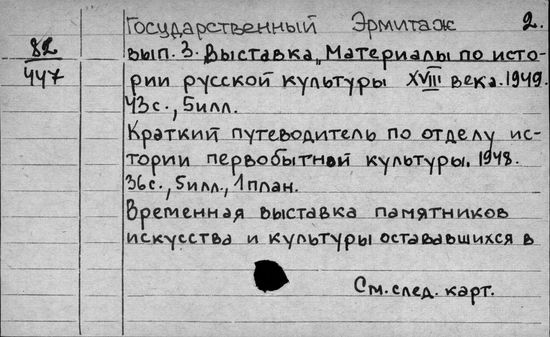 Государственный Эрмитаж 2.
82
447
вып. 3. Выставка „Материалы по исто-
рии русской культуры XVIII века. 1949.
43с., 5илл.
Краткий путеводитель по отделу ис-
тории первобытной культуры. 1948.
36с., 5илл., 1план.
Временная выставка памятников
искусства и культуры остававшихся в
См. след. карт.